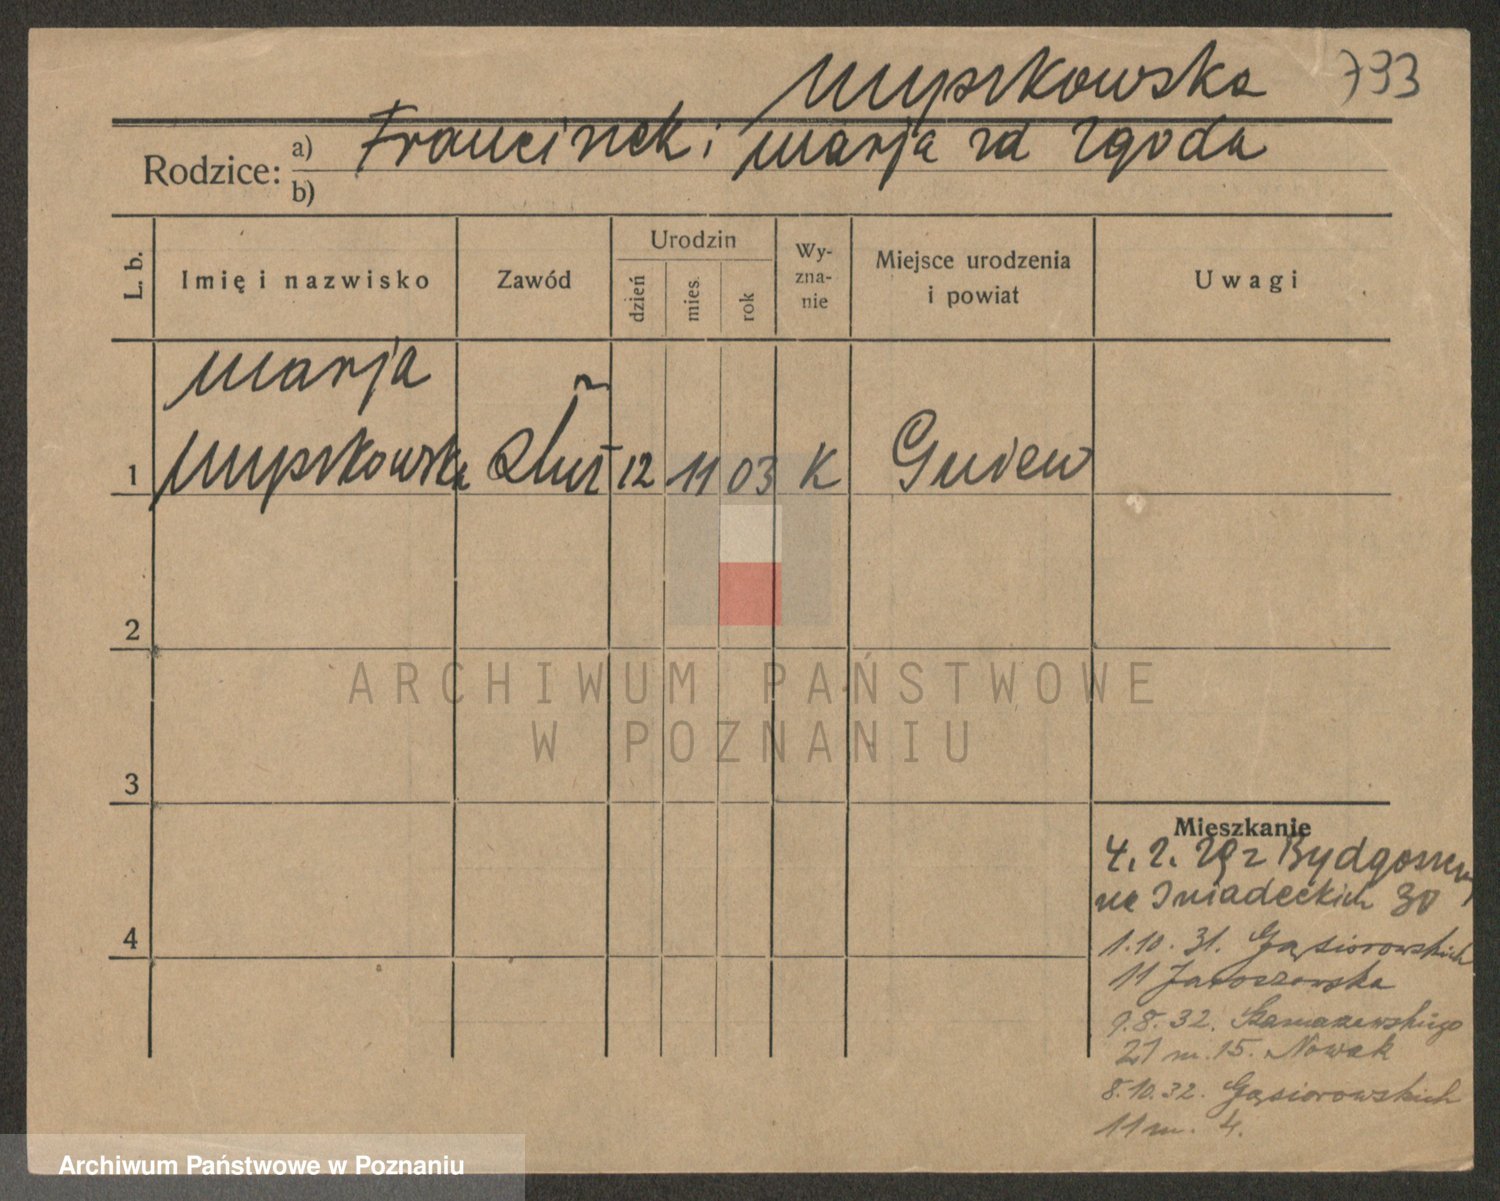 Myszkowska 793
Rodzice: a) Franciszek i Marja zd Zgoda
b)
L. b. Imię i nazwisko Zawód Urodzin dzień mies. rok Wyznanie Miejsce urodzenia i powiat Uwagi
Marja
1 Myszkowska Służ 12 11 03 K Gniew
2
3
4
Mieszkanie
4. 2. 29 z Bydgoszczy
na Śniadeckich 30
1. 10. 31. Gąsiorowskich
11 Jaroszewska
9. 8. 32. Szamarzewskiego
21 m. 15. Nowak
8. 10. 32. Gąsiorowskich
11 m. 4.
ARCHIWUM PAŃSTWOWE
W POZNANIU
Archiwum Państwowe w Poznaniu